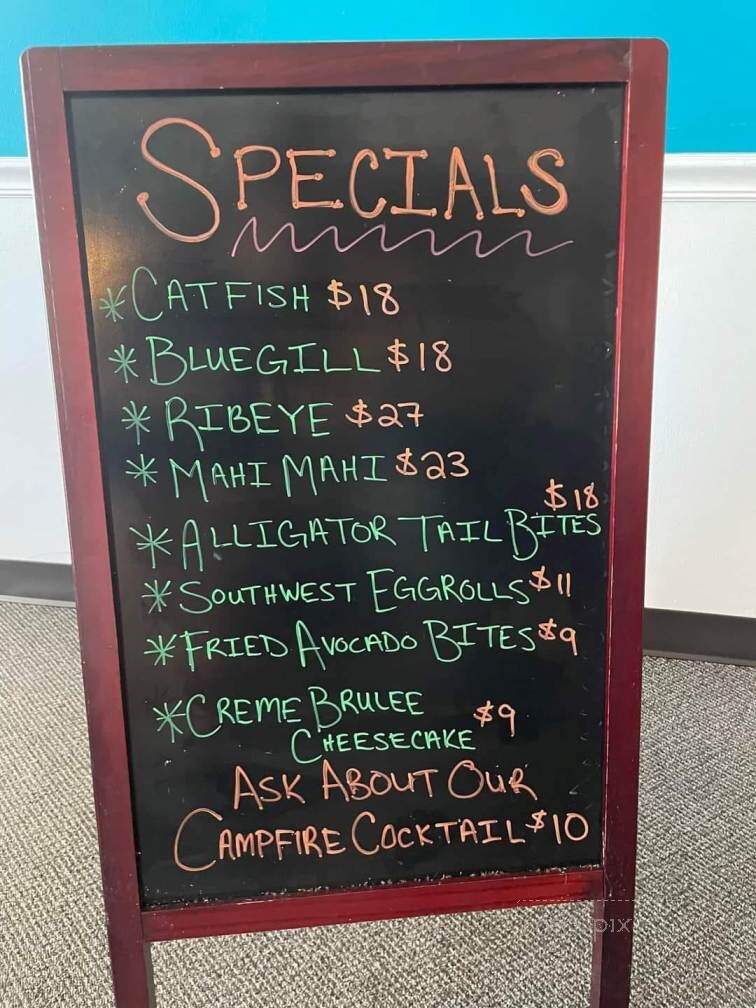 SPECIALS
*CATFISH $18
*BLUEGILL $18
*RIBEYE $27
*MAHI MAHI $23
$18
*ALLIGATOR TAIL BITES
*SOUTHWEST EGGROLLS $11
*FRIED AVOCADO BITES $9
*CREME BRULEE $9
CHEESECAKE
ASK ABOUT OUR
CAMPFIRE COCKTAIL $10